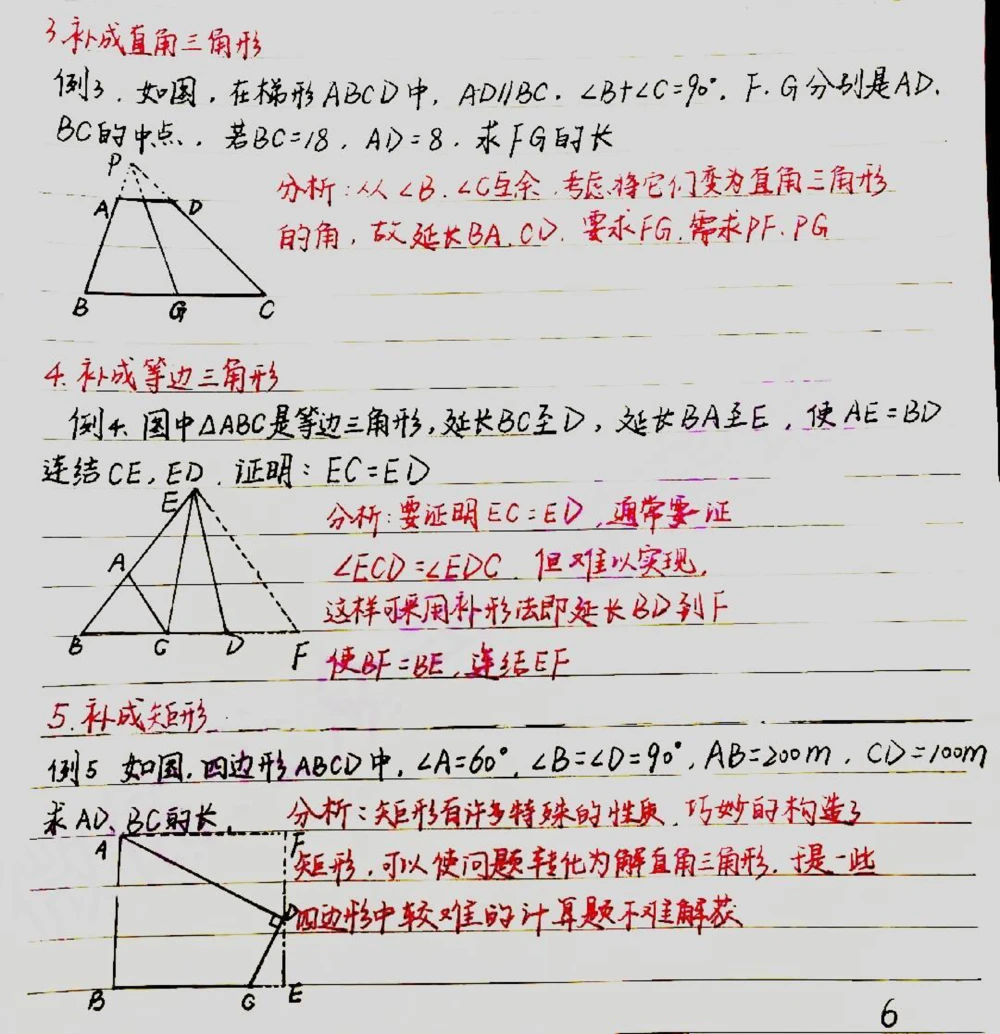 3.补成直角三角形
例3.如图,在梯形ABCD中,AD∥BC.∠B+∠C=90°.F.G分别是AD.
BC的中点.若BC=18,AD=8.求FG的长
P
A D
B G C
分析:从∠B.∠C互余,考虑将它们变为直角三角形
的角,故延长BA.CD.要求FG.需求PF.PG
4.补成等边三角形
例4.图中△ABC是等边三角形,延长BC至D,延长BA至E,使AE=BD
连结CE,ED.证明:EC=ED
E
A
B C D F
分析:要证明EC=ED,通常要证
∠ECD=∠EDC.但难以实现,
这样可采用补形法即延长BD到F
使BF=BE,连结EF
5.补成矩形
例5 如图,四边形ABCD中,∠A=60°,∠B=∠D=90°,AB=200m,CD=100m
求AD、BC的长.
分析:矩形有许多特殊的性质,巧妙的构造了
矩形,可以使问题转化为解直角三角形,于是一些
四边形中较难的计算题不难解获
A F
D
B C E
6